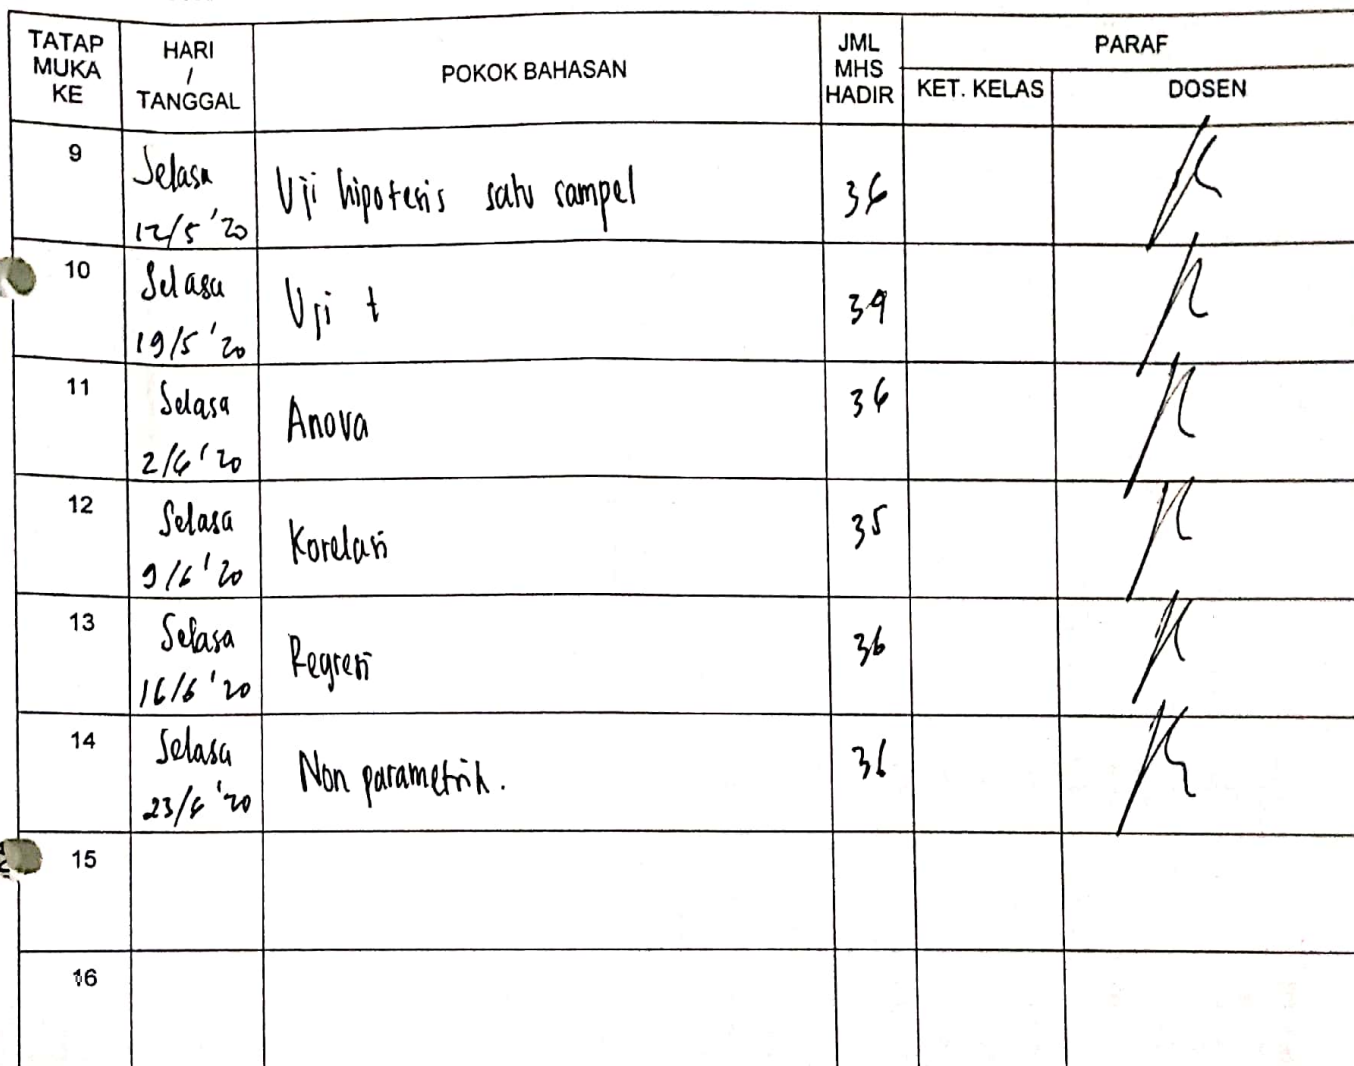 TATAP MUKA KE HARI / TANGGAL POKOK BAHASAN JML MHS HADIR PARAF
KET. KELAS DOSEN
9 Selasa 12/5 '20 Uji hipotesis satu sampel 36
10 Selasa 19/5 '20 Uji t 39
11 Selasa 2/6 '20 Anova 36
12 Selasa 9/6 '20 Korelasi 35
13 Selasa 16/6 '20 Regresi 36
14 Selasa 23/6 '20 Non parametrik. 36
15
16